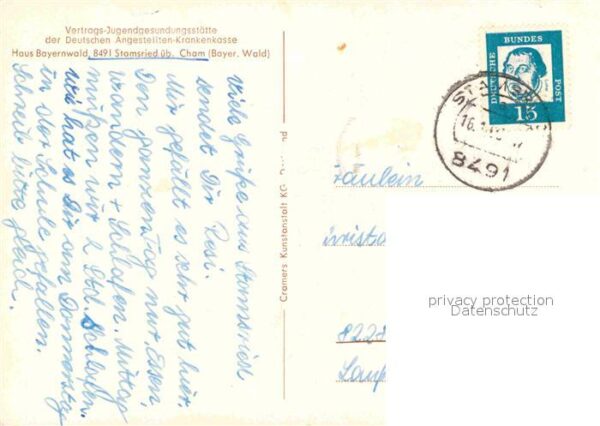 Vertrags-Jugendgesundungsstätte
der Deutschen Angestellten-Krankenkasse
Haus Bayernwald, 8491 Stamsried üb. Cham (Bayer. Wald)
Viele Grüße aus Stamsried
sendet Dir Resi.
Mir gefällt es sehr gut hier.
Den ganzen Tag nur Essen,
wandern + Schlafen. Mittag
müßen wir 2 Std. Schlafen.
Wie hat es Dir am Donnerstag
in der Schule gefallen.
Schreib bitte gleich.
Cramers Kunstanstalt KG
DEUTSCHE
BUNDES
POST
15
8491
Fräulein
8228
privacy protection
Datenschutz